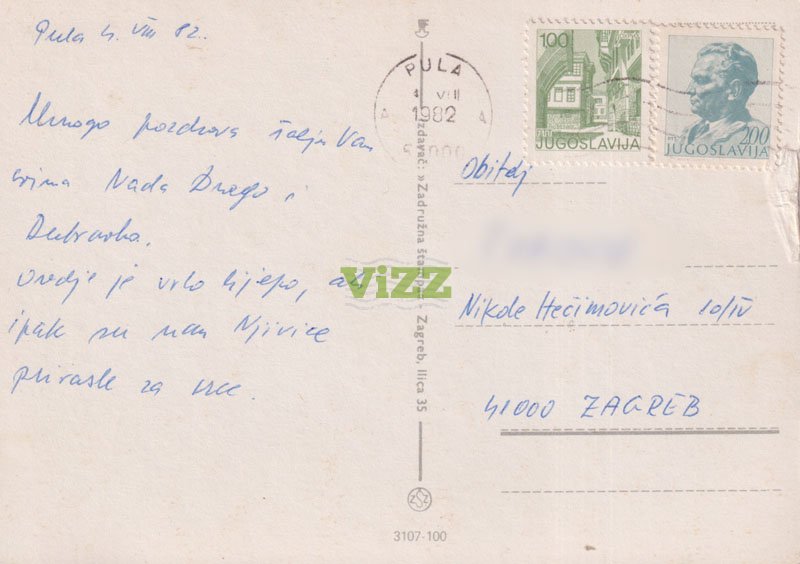 Pula 4. VIII 82.
Mnogo pozdrava šalju Vam
svima Nada Drago i
Dubravka.
Ovdje je vrlo lijepo, ali
ipak su nam Njivice
prirasle za srce.
PULA
4 VIII
1982
A A
100
JUGOSLAVIJA
2.00
JUGOSLAVIJA
Obitelj
Nikole Hećimovića 10/IV
41000 ZAGREB
Izdavač: »Zadružna štampa« - Zagreb, Ilica 35
ZSZ
3107-100
VIZZ